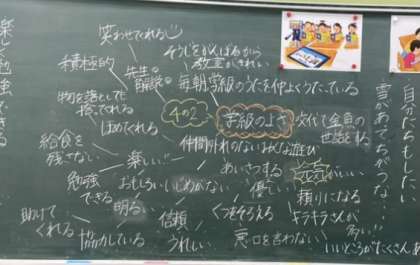 笑わせてくれる
そうじをがんばるから
教室がきれい
積極的
先生の
毎朝学級のうたを仲よくうたっている
物を落としても
拾ってくれる
ほめてくれる
4の2
学級のよさ
交代で全員の
世話をする
給食を
残さない
楽しい!!
仲間外れのないみんな遊び
あいさつする
勉強
できる
おもしろい
いじめがない
優しい
頼りになる
明るい
信頼
くつをそろえる
キラキラさんが
多い!!
助けて
くれる
協力している
うれしい
悪口を言わない
いいところがたくさん
楽しく勉強できる
自分たちもしたい